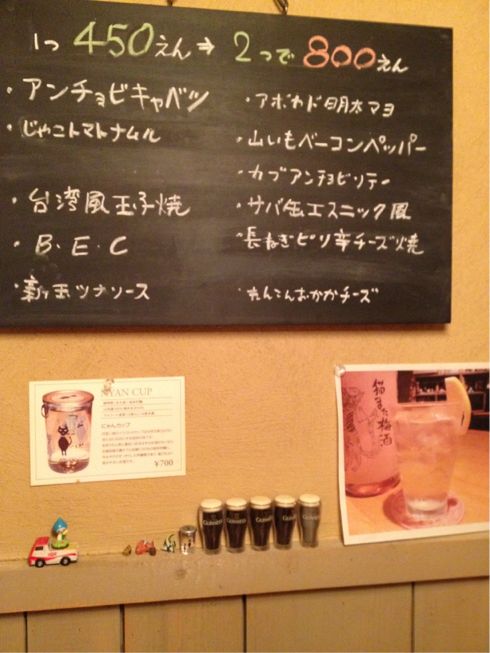 1つ 450えん ⇒ 2つで 800えん
・アンチョビキャベツ
・じゃこトマトナムル
・台湾風玉子焼
・B.E.C
・新玉ツナソース
・アボカド明太マヨ
・山いもベーコンペッパー
・カブアンチョビソテー
・サバ缶エスニック風
・長ねぎピリ辛チーズ焼
・れんこんおかかチーズ
NYAN CUP
にゃんカップ
¥700
猫また梅酒
GUINNESS
GUINNESS
GUINNESS
GUINNESS
GUINNESS